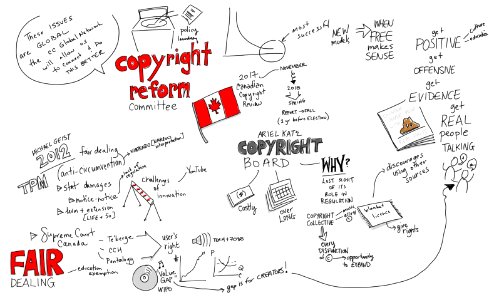 These ISSUES
are GLOBAL
the CC Global Network
will allow us
to connect & Do
THIS BETTER
policy
laundry
copyright
reform
Committee
2017
Canadian
Copyright
Review
NOVEMBER
2018
SPRING
REPORT
(1 yr before Election)
most
successful
NEW
models
WHEN
FREE
makes
SENSE
get
POSITIVE
get
OFFENSIVE
get
EVIDENCE
get
REAL
people
TALKING
MICHAEL GEIST
2012
TPM
fair dealing
(anti-circumvention)
stat damages
notice-notice
term extension
[LIFE + 50]
challenge
of
innovation
YouTube
ARIEL KATZ
COPYRIGHT
BOARD
Costly
over
LOADS
WHY?
LOST SIGHT OF
ITS
ROLE in
REGULATION
COPYRIGHT
COLLECTIVE
every
DISRUPTION
opportunity
to EXPAND
blanket
licence
give
rights
discourages
using other
sources
Supreme Court
Canada
Théberge
CCH
Pentalogy
user's
right
FAIR
DEALING
education
exemption
VALUE
GAP
WIPO
P
Q
gap is for CREATORS!